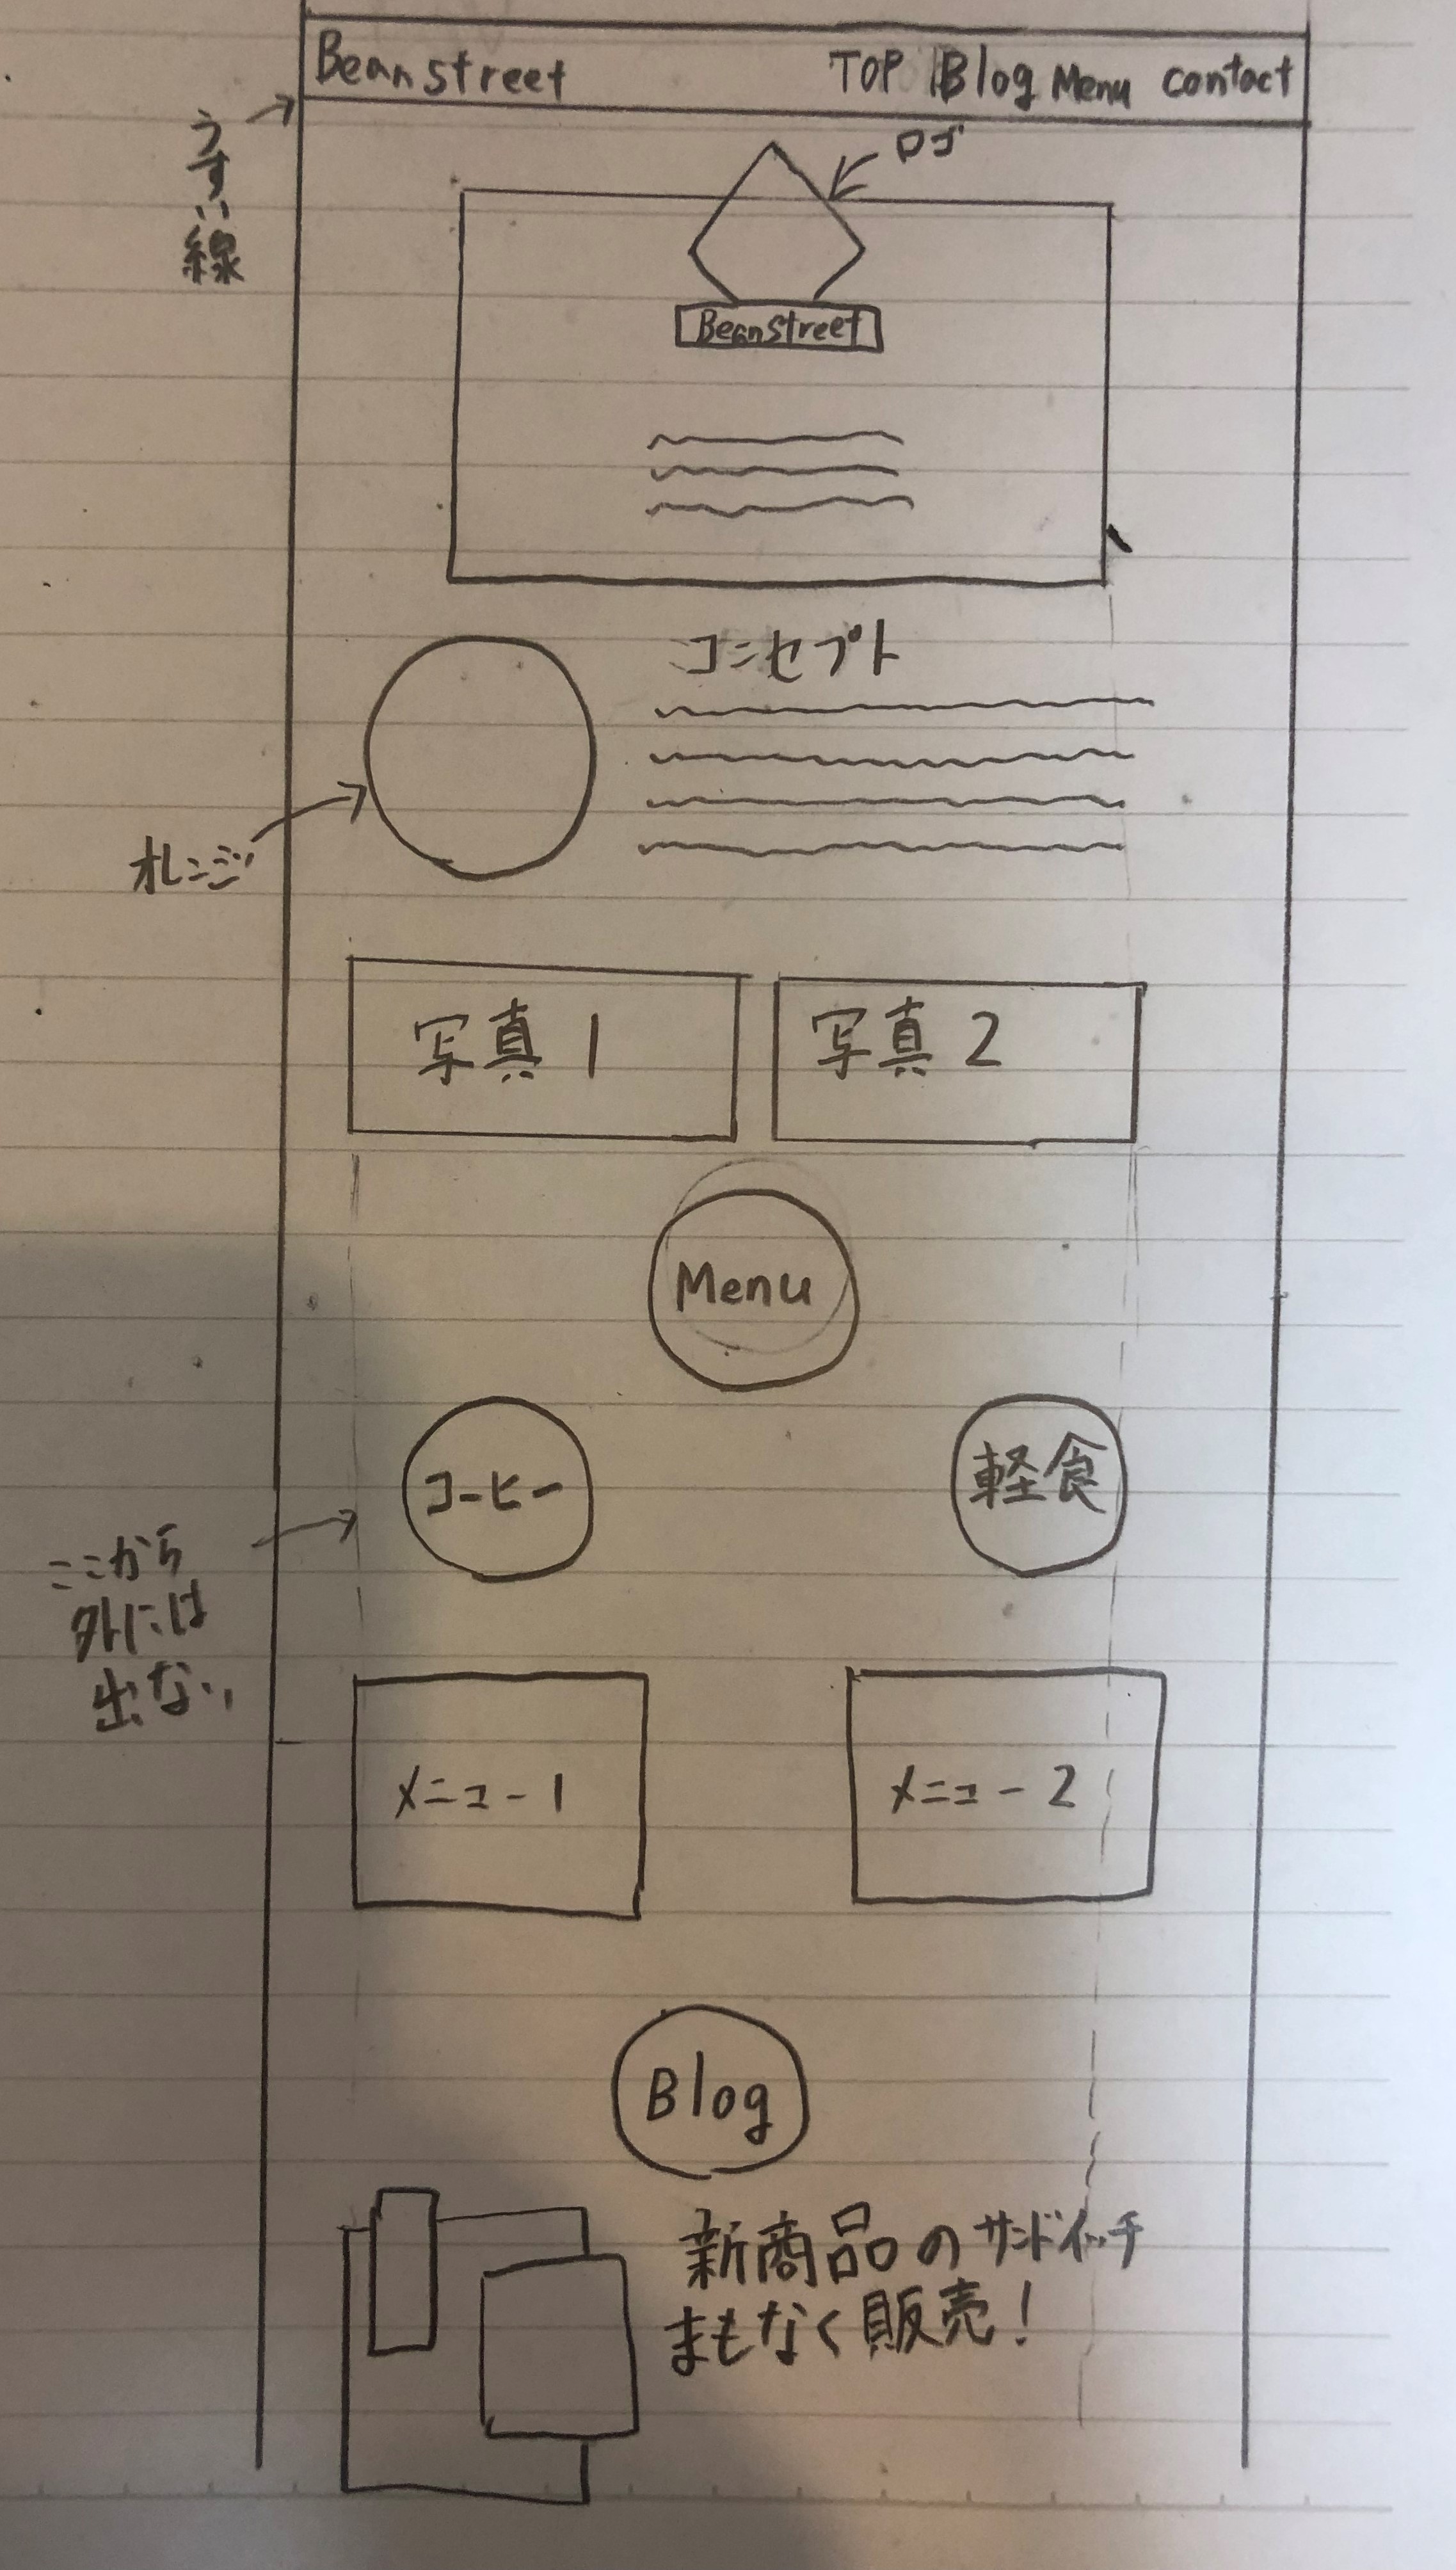 Beanstreet
TOP Blog Menu contact
うすい線
ロゴ
Beanstreet
コンセプト
オレンジ
写真1
写真2
Menu
コーヒー
軽食
ここから
外には
出ない
メニュー1
メニュー2
Blog
新商品のサンドイッチ
まもなく販売!